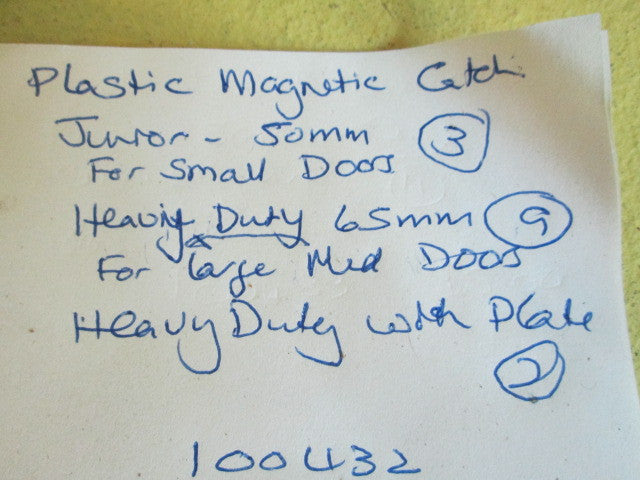 Plastic Magnetic Catch
Junior - 50mm 3
For Small Doors
Heavy Duty 65mm 9
For large Med Doors
Heavy Duty with Plate
2
100432